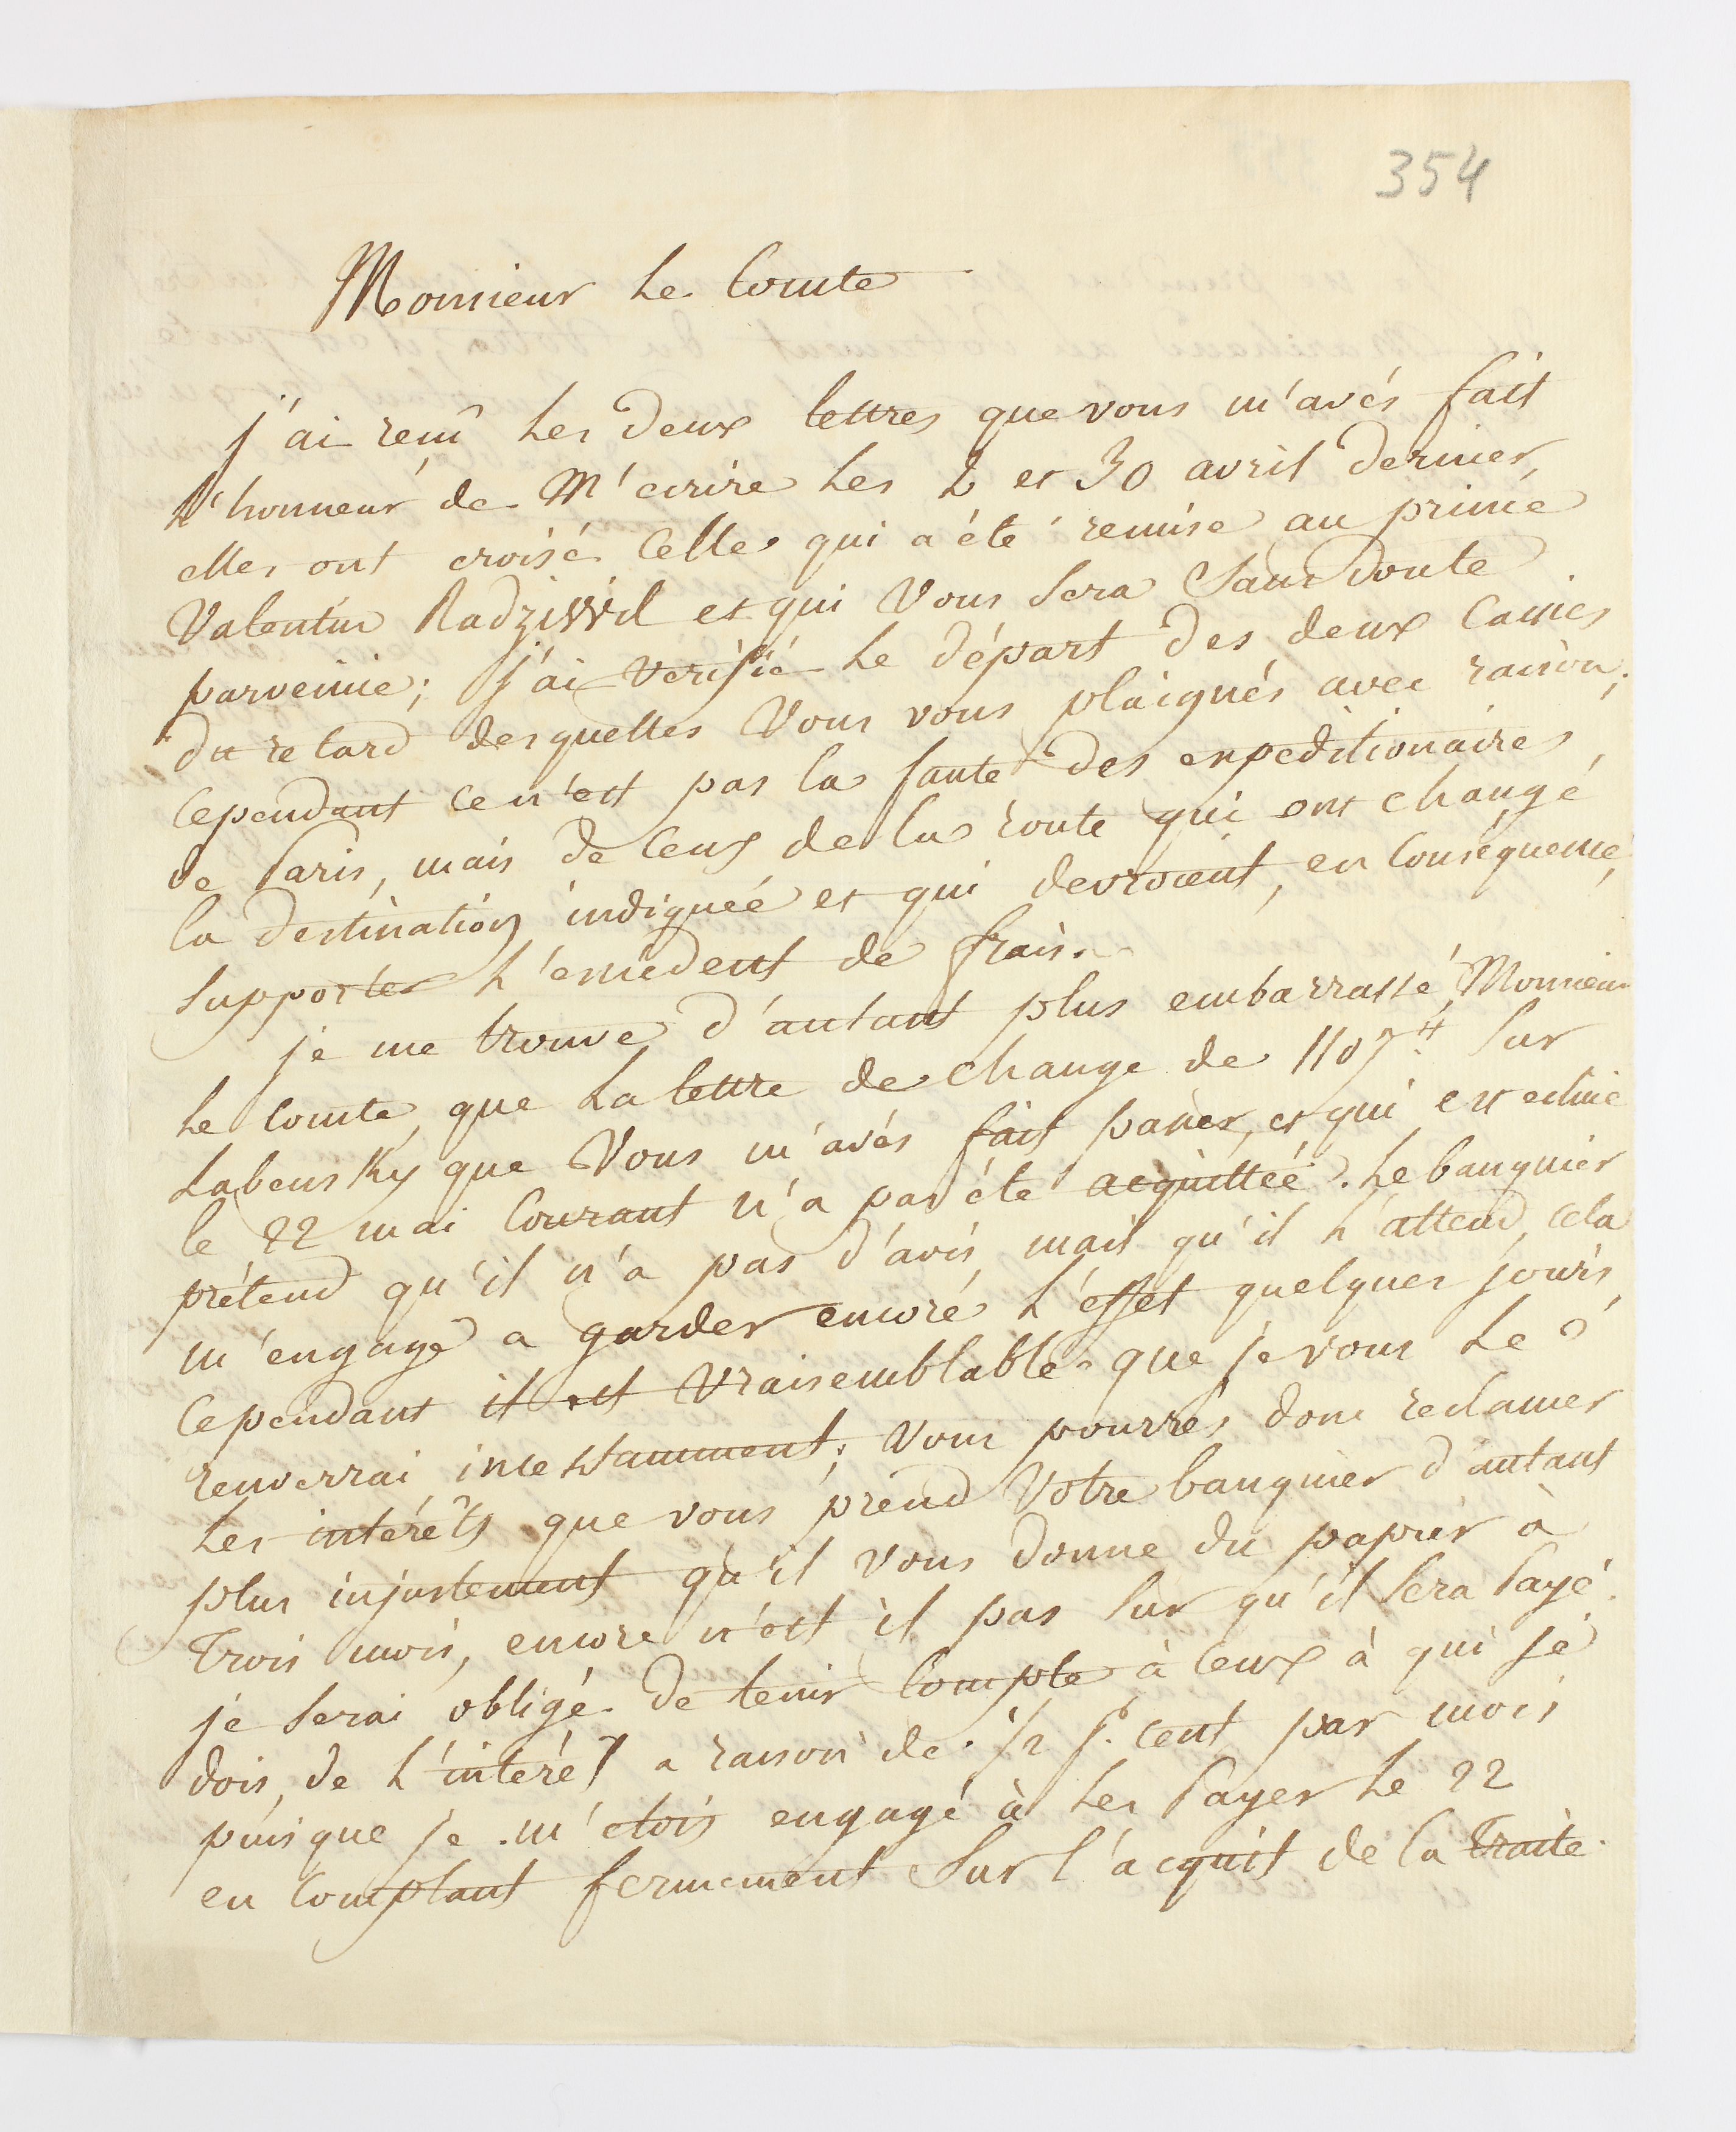 354
Monsieur Le Comte
j'ai reçû Les deux lettres que vous m'avés fait
L'honneur de M'ecrire Les 2 et 30 avril dernier,
elles ont croisé Celle qui a été remise au prince
Valentin Radziwil et qui Vous Sera Sans doute
parvenüe; j'ai verifié Le départ des deux Caisses
du retard desquelles Vous vous plaignés avec raison;
Cependant Ce n'est pas la faute des expeditionaires
de Paris, mais de Ceux de la route qui ont changé
la destination indiquée et qui devroient, en Conséquence,
Supporter L'excedent de frais.
je me trouve d'autant plus embarrassé, Monsieur
Le Comte, que La lettre de change de 1107ʰ Sur
Labensky que Vous m'avés fait passer, et qui est echüe
le 22 mai Courant n'a pas été acquittée. Le banquier
prétend qu'il n'a pas d'avis, mais qu'il L'attend, cela
m'engage a garder encore L'effet quelques jours,
Cependant il est vraisemblable que je vous Le
renverrai incestamment; Vous pourrés donc reclamer
Les intérêts que vous prend Votre banquier d'autant
plus injustement qu'il vous donne du papier à
Trois mois, encore n'est il pas Sur qu'il Sera Payé.
je Serai obligé de tenir Compte à Ceux à qui je
dois, de L'intérêt a raison de 1/2 p. cent par mois
puisque je m'etois engagé à Les Payer Le 22
en Comptant fermement Sur l'acquit de la Traite.